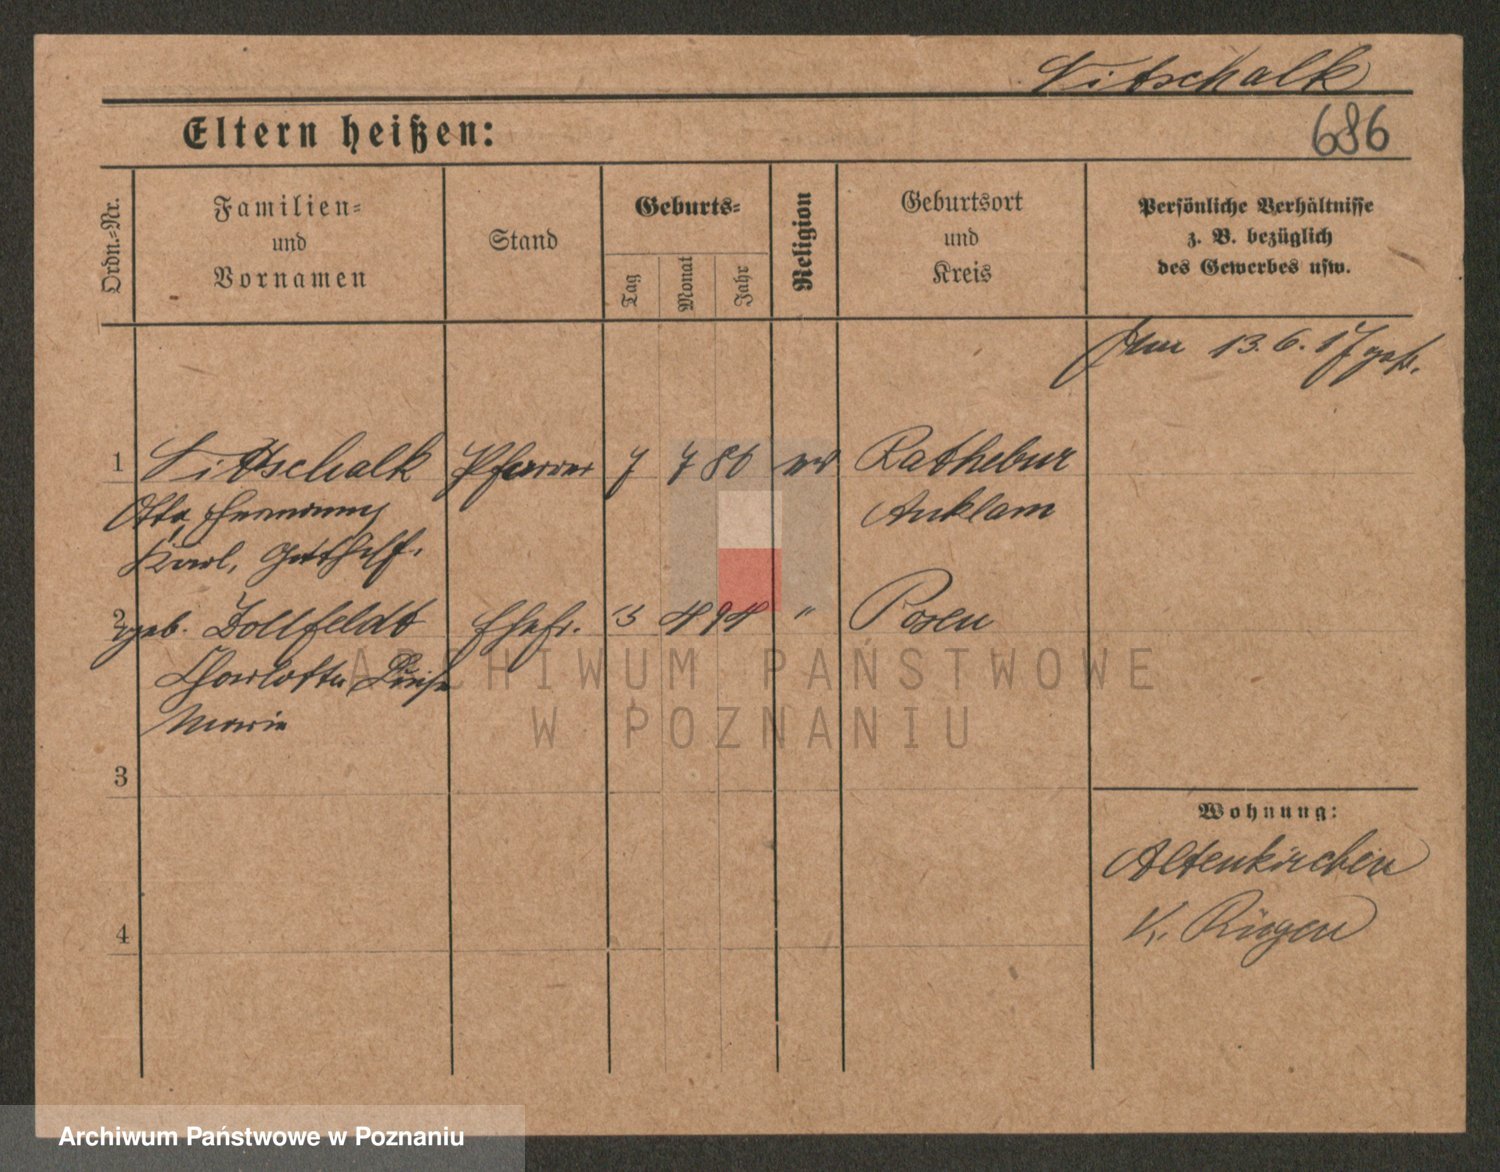 Litschalk
Eltern heißen:
686
Ordn.-Nr.
Familien-
und
Vornamen
Stand
Geburts-
Tag
Monat
Jahr
Religion
Geburtsort
und
Kreis
Persönliche Verhältnisse
z. B. bezüglich
des Gewerbes usw.
13. 6. 17
1 Litschalk Pfarrer 7 7 86 Rathebur
Otto, Hermann, Anklam
Karl, Gotthilf.
2 geb. Dollfeldt Ehefr. 3 4 94 " Posen
Charlotte, Luise
Marie
3
4
Wohnung:
Altenkirchen
K. Rügen
ARCHIWUM PAŃSTWOWE
W POZNANIU
Archiwum Państwowe w Poznaniu